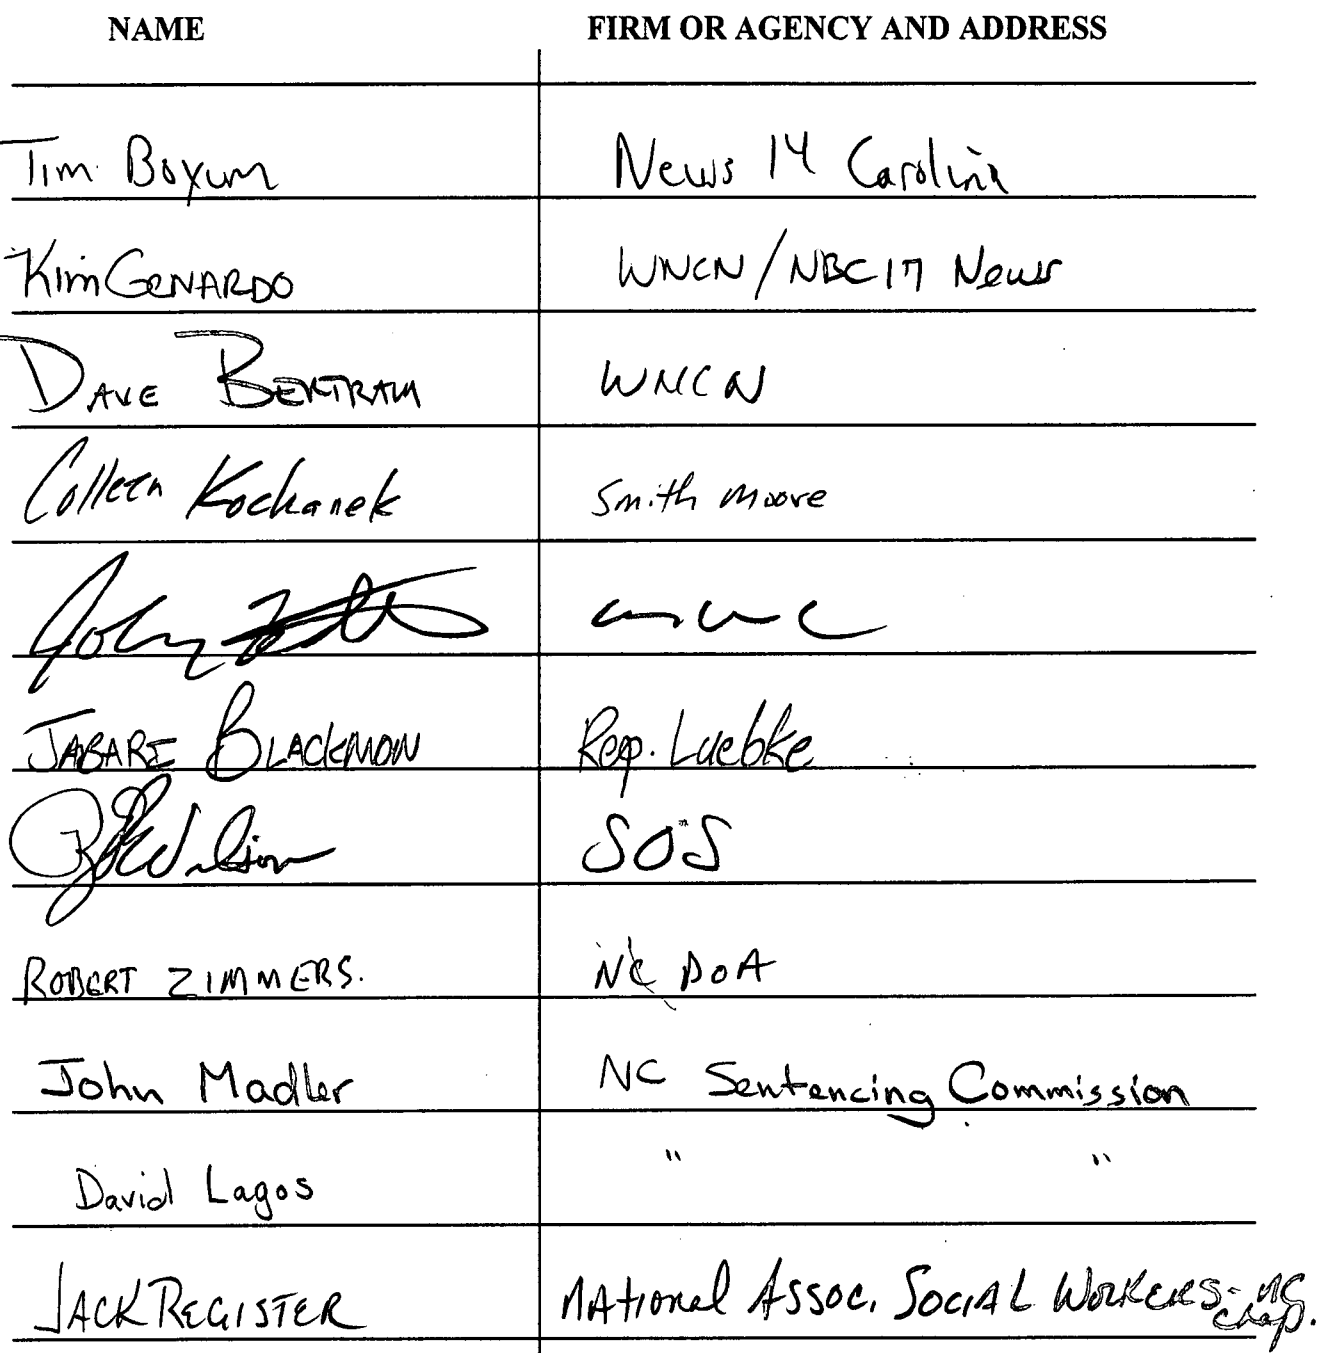 NAME FIRM OR AGENCY AND ADDRESS
Tim Boxum News 14 Carolina
Kim GENARDO WNCN/NBC17 News
DAVE BERTRAM WNCN
Colleen Kochanek Smith Moore
John
JABARI BLACKMON Rep. Luebke
Wilson SOS
ROBERT ZIMMERS. NC DOA
John Madler NC Sentencing Commission
David Lagos " "
JACK REGISTER National Assoc. Social Workers - NC
chap.